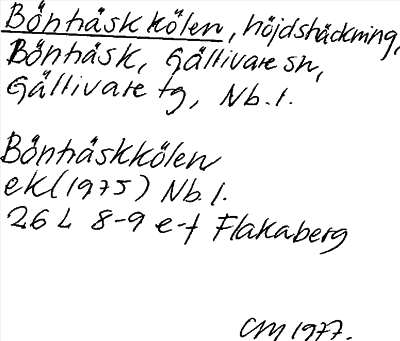 Bönträskkölen, höjdsträckning,
Bönträsk, Gällivare sn,
Gällivare tg, Nb. l.
Bönträskkölen
ek (1975) Nb. l.
26 L 8-9 e-f Flakaberg
CM 1977.